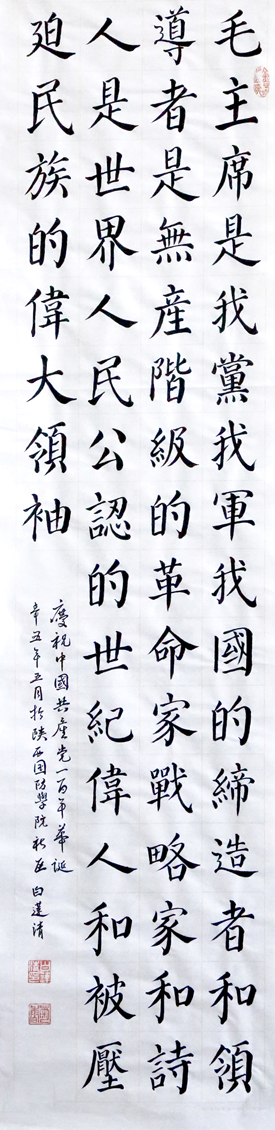 毛主席是我黨我軍我國的締造者和領
導者是無産階級的革命家戰略家和詩
人是世界人民公認的世紀偉人和被壓
廹民族的偉大領袖
慶祝中國共產党一百年華誕
辛丑年五月於陝西国防學院新区 白蓮清